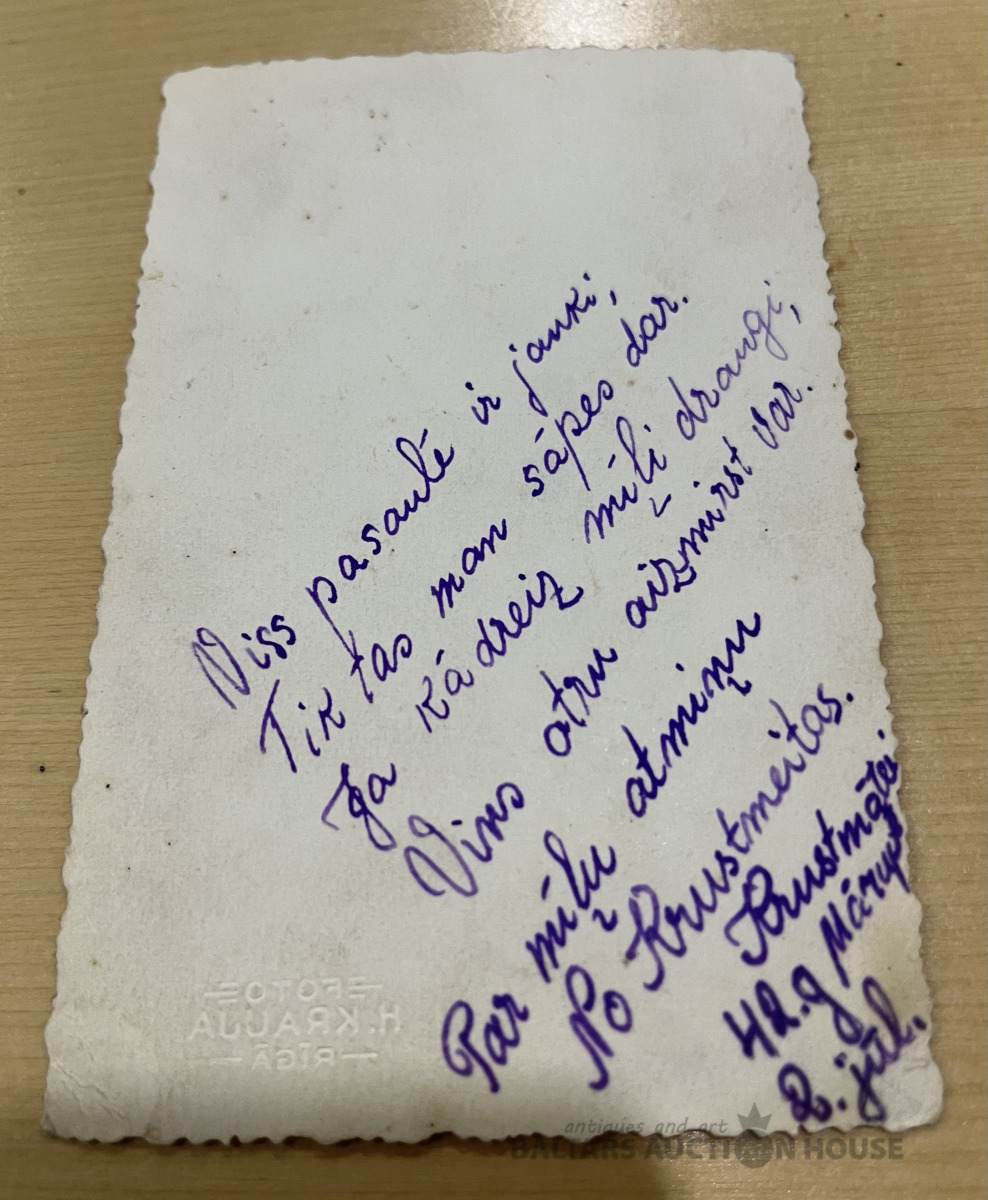 Viss pasaulē ir jauki,
Tik tas man sāpes dar.
Ja kādreiz mīļi draugi,
Vins otru aizmirst var.
Par mīļu atmiņu
No Krustmeitas.
Krustmātei
42. g Mārupē
2. jūl.
FOTO
H. KRAUJA
RĪGĀ
antiques and art
BALTARS AUCTION HOUSE